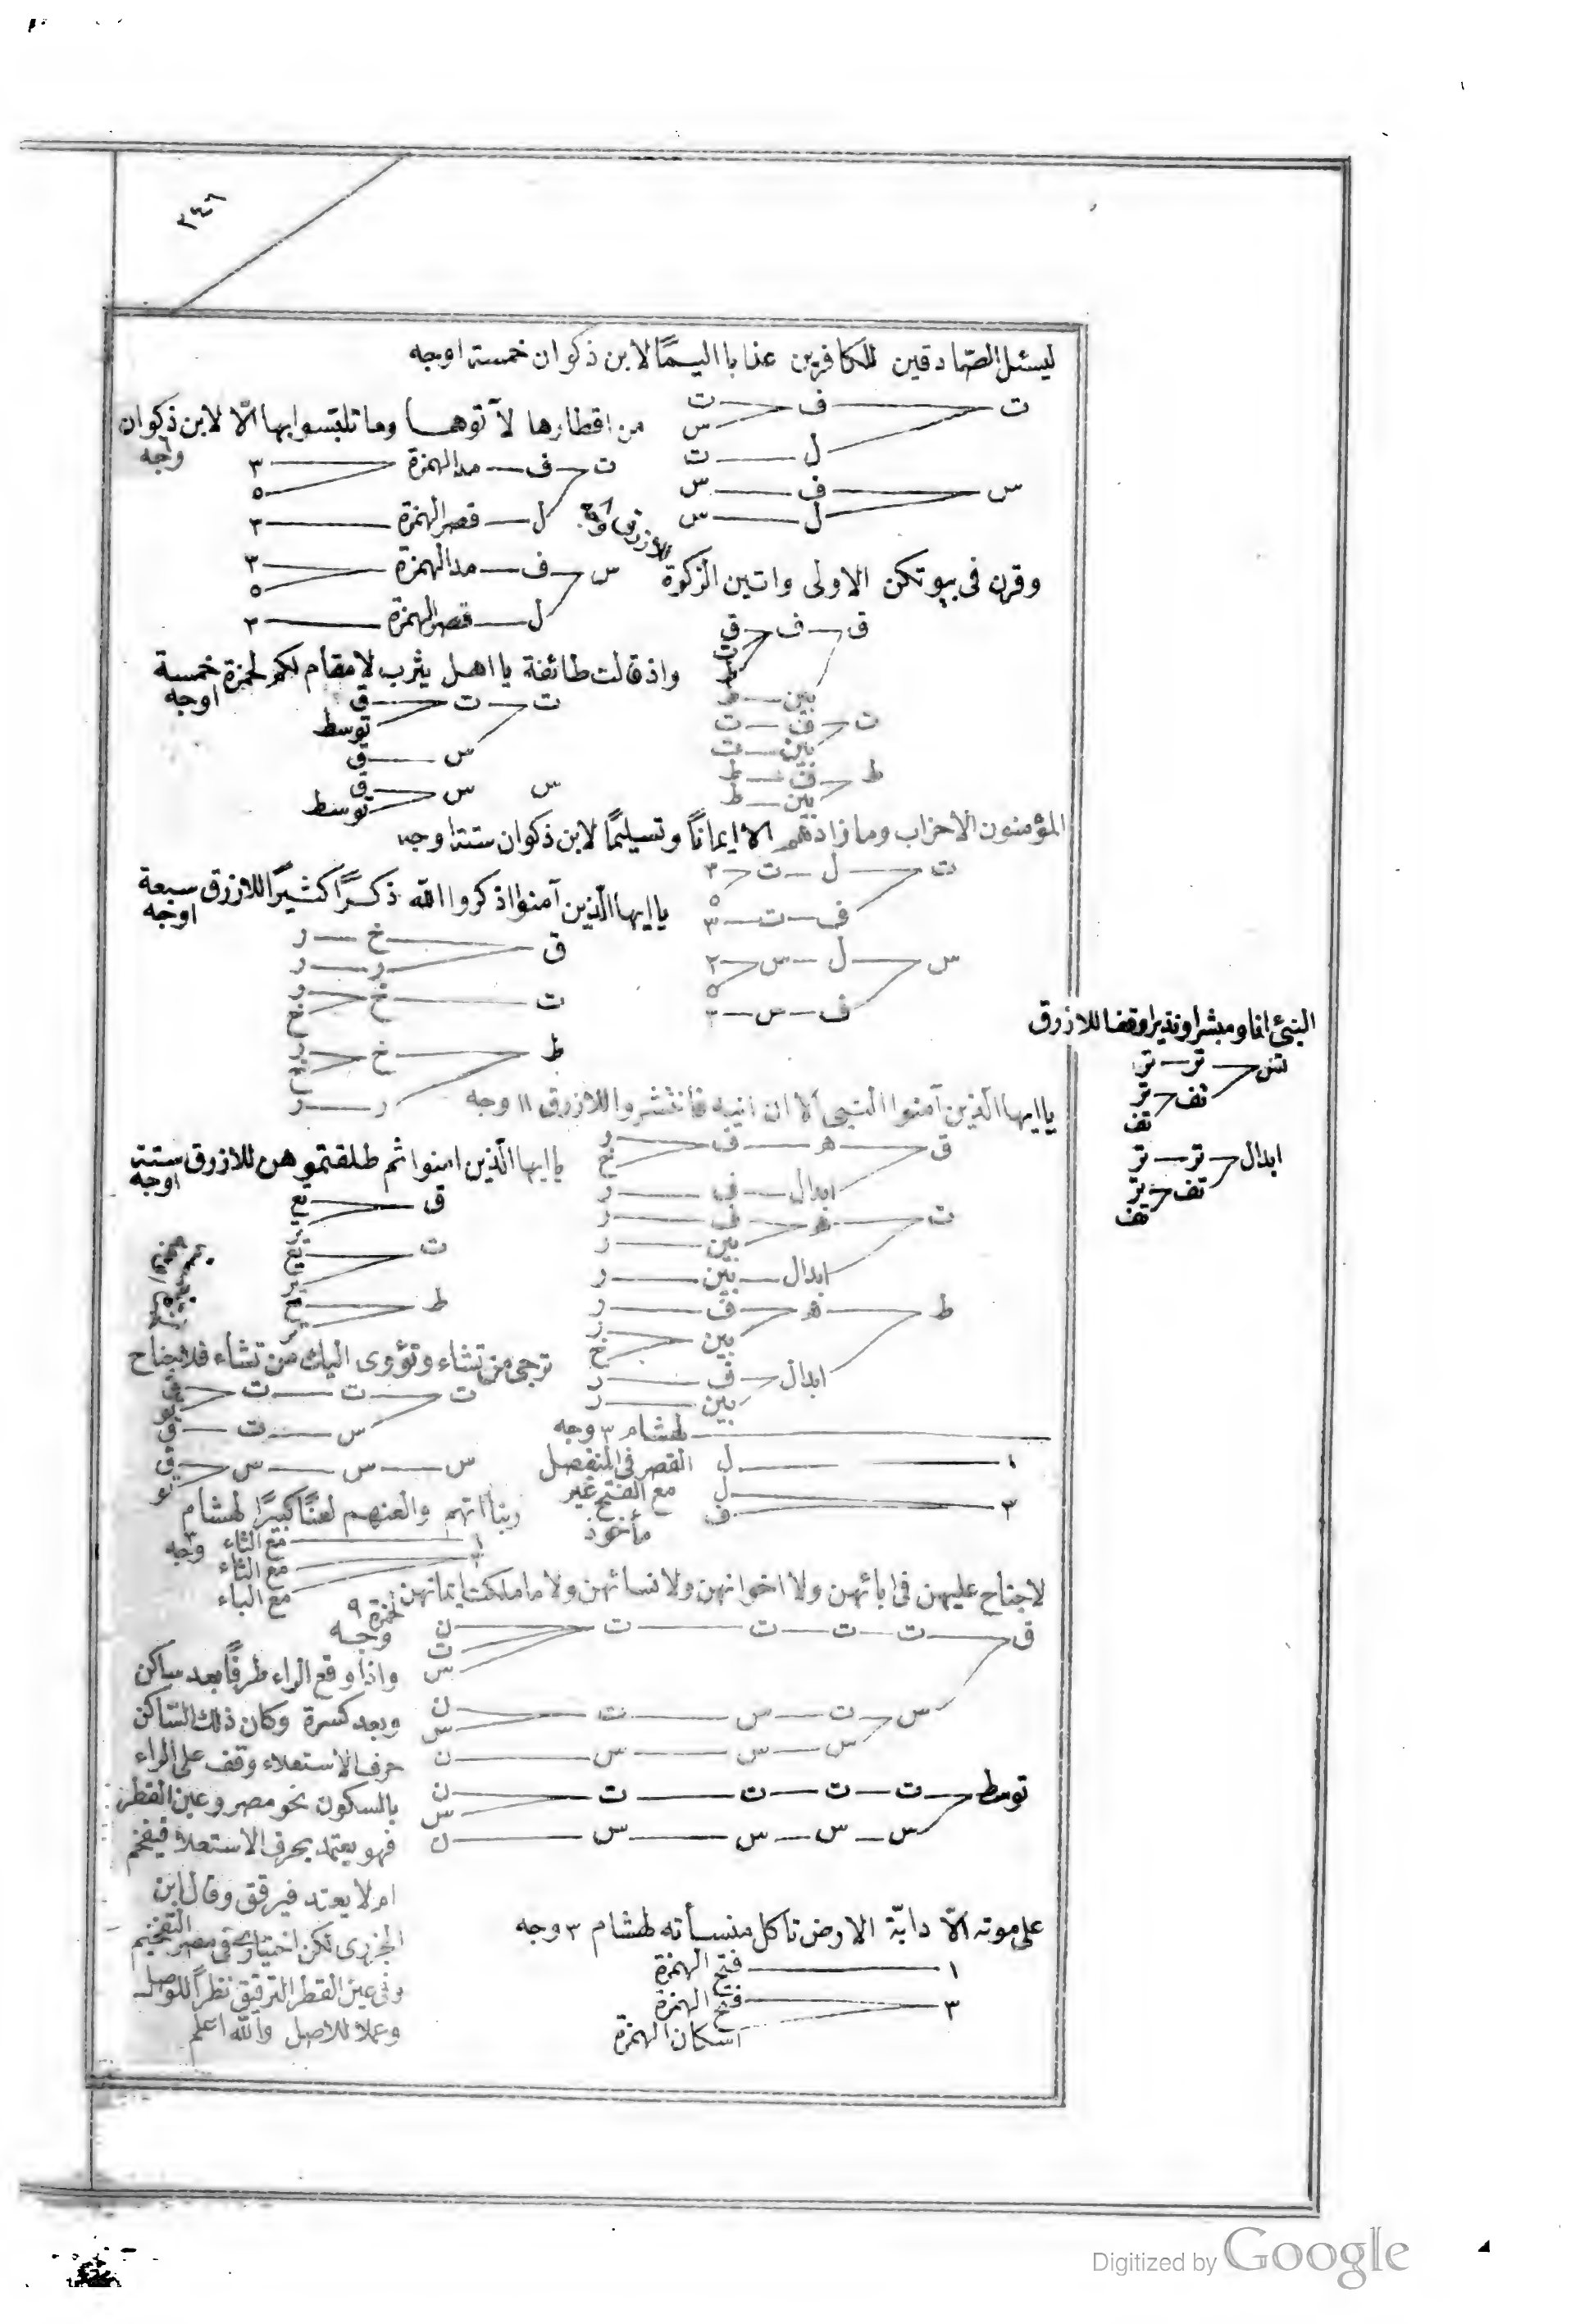 ٣٤٦
ليسئل الصّادقين للكافرين عذابا اليمًا لابن ذكوان خمسة اوجه
ت ف ت
س
ل ت
س ف س
ل س
من اقطارها لآتوهـا وما تلبّسوا بها الّا لابن ذكوان
٦ وجه
ت ف مد الهمزة ٣
٥
ل قصر الهمزة ٣
س ف مد الهمزة ٣
٥
ل قصر الهمزة ٣
وقرن فى بيوتكن الاولى واتين الزكوة للازرق
ق ف ق
ت
ط
بين ط
ت ف ت
بين ت
ط ف ط
بين ط
واذ قالت طائفة يا اهل يثرب لا مقام لكم لحمزة خمسة
اوجه
ت ت ق
توسط
س ق
س س ق
توسط
المؤمنون الاحزاب وما زادهم الا ايمانًا وتسليمًا لابن ذكوان ستة اوجه
ت ل ت ٣
٥
ف ت ٣
س ل س ٣
٥
ف س ٣
يا ايها الّذين آمنوا اذكروا الله ذكرًا كثيرًا للازرق سبعة
اوجه
ق خ ر
ر ر
ت خ ر
خ
ط خ ر
خ
ر ر
النبئ انا ومبشرا ونذيرا وقفا للازرق
تس تر تر
تف تر
تف
ابدال تر تر
تف تر
تف
يا ايها الّذين آمنوا النبى الا ان انيه فانتشروا للازرق ١١ وجه
ق ه ف ر
خ
ابدال ف ر
ت ه ف ر
بين ر
ابدال بين ر
ط ه ف ر
بين ر
خ
ابدال ف ر
بين ر
يا ايها الّذين امنوا ثم طلقتموهن للازرق ستة
اوجه
ق تع
ت تع
ط
ترجى من تشاء وتؤوى اليك من تشاء فلا جناح
ت ت ت ق
س ت ق
س س س ق
لهشام ٣ وجه
١ ل القصر فى المنفصل
٣ ل مع الفتح غير
ف مأخوذ
ربنا اتهم والعنهم لعنًا كبيرًا لهشام
مع الثاء ٣ وجه
مع الثاء
مع الباء
لا جناح عليهن فى ابائهن ولا اخوانهن ولا نسائهن ولا ما ملكت ايمانهن
لحمزة ٩
وجه
ق ت ت ت ت ن
ت
س
س ت س ت ن
س
س س س ن
توسط ت ت ت ت ن
س
س س س س ن
واذا وقع الراء طرفًا بعد ساكن
وبعد كسرة وكان ذلك السّاكن
حرف الاستعلاء وقف على الراء
بالسكون نحو مصر وعين القطر
فهو يعتد بحرف الاستعلاء فيفخم
ام لا يعتد فيرقق وقال ابن
الجزرى لكن اختيارى فى مصر التفخيم
وفى عين القطر الترقيق نظرًا للوصل
وعملا للاصل والله اعلم
على موته الّا دابّة الارض تاكل منسأته لهشام ٣ وجه
١ فتح الهمزة
٣ فتح الهمزة
اسكان الهمزة
Digitized by Google